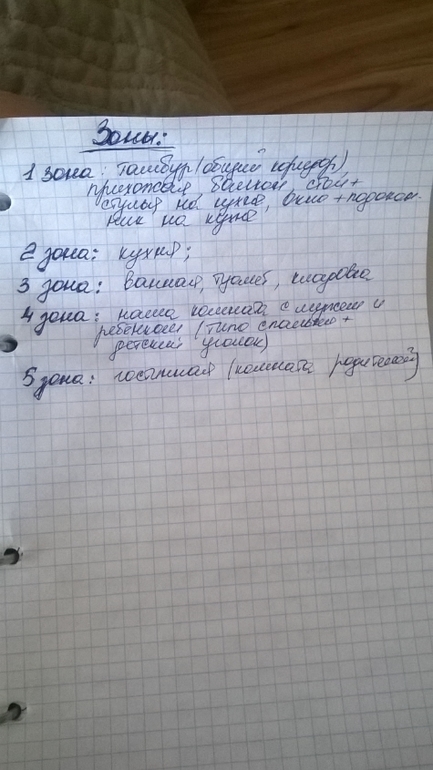 Зоны:
1 зона: тамбур (общий коридор)
прихожая балкон, стол+
стулья на кухне, окно + подокон-
ник на кухне
2 зона: кухня;
3 зона: ванная, туалет, кладовка
4 зона: наша комната с мужем и
ребёнком (типо спальня +
детский уголок)
5 зона: гостинная (комната родителей)